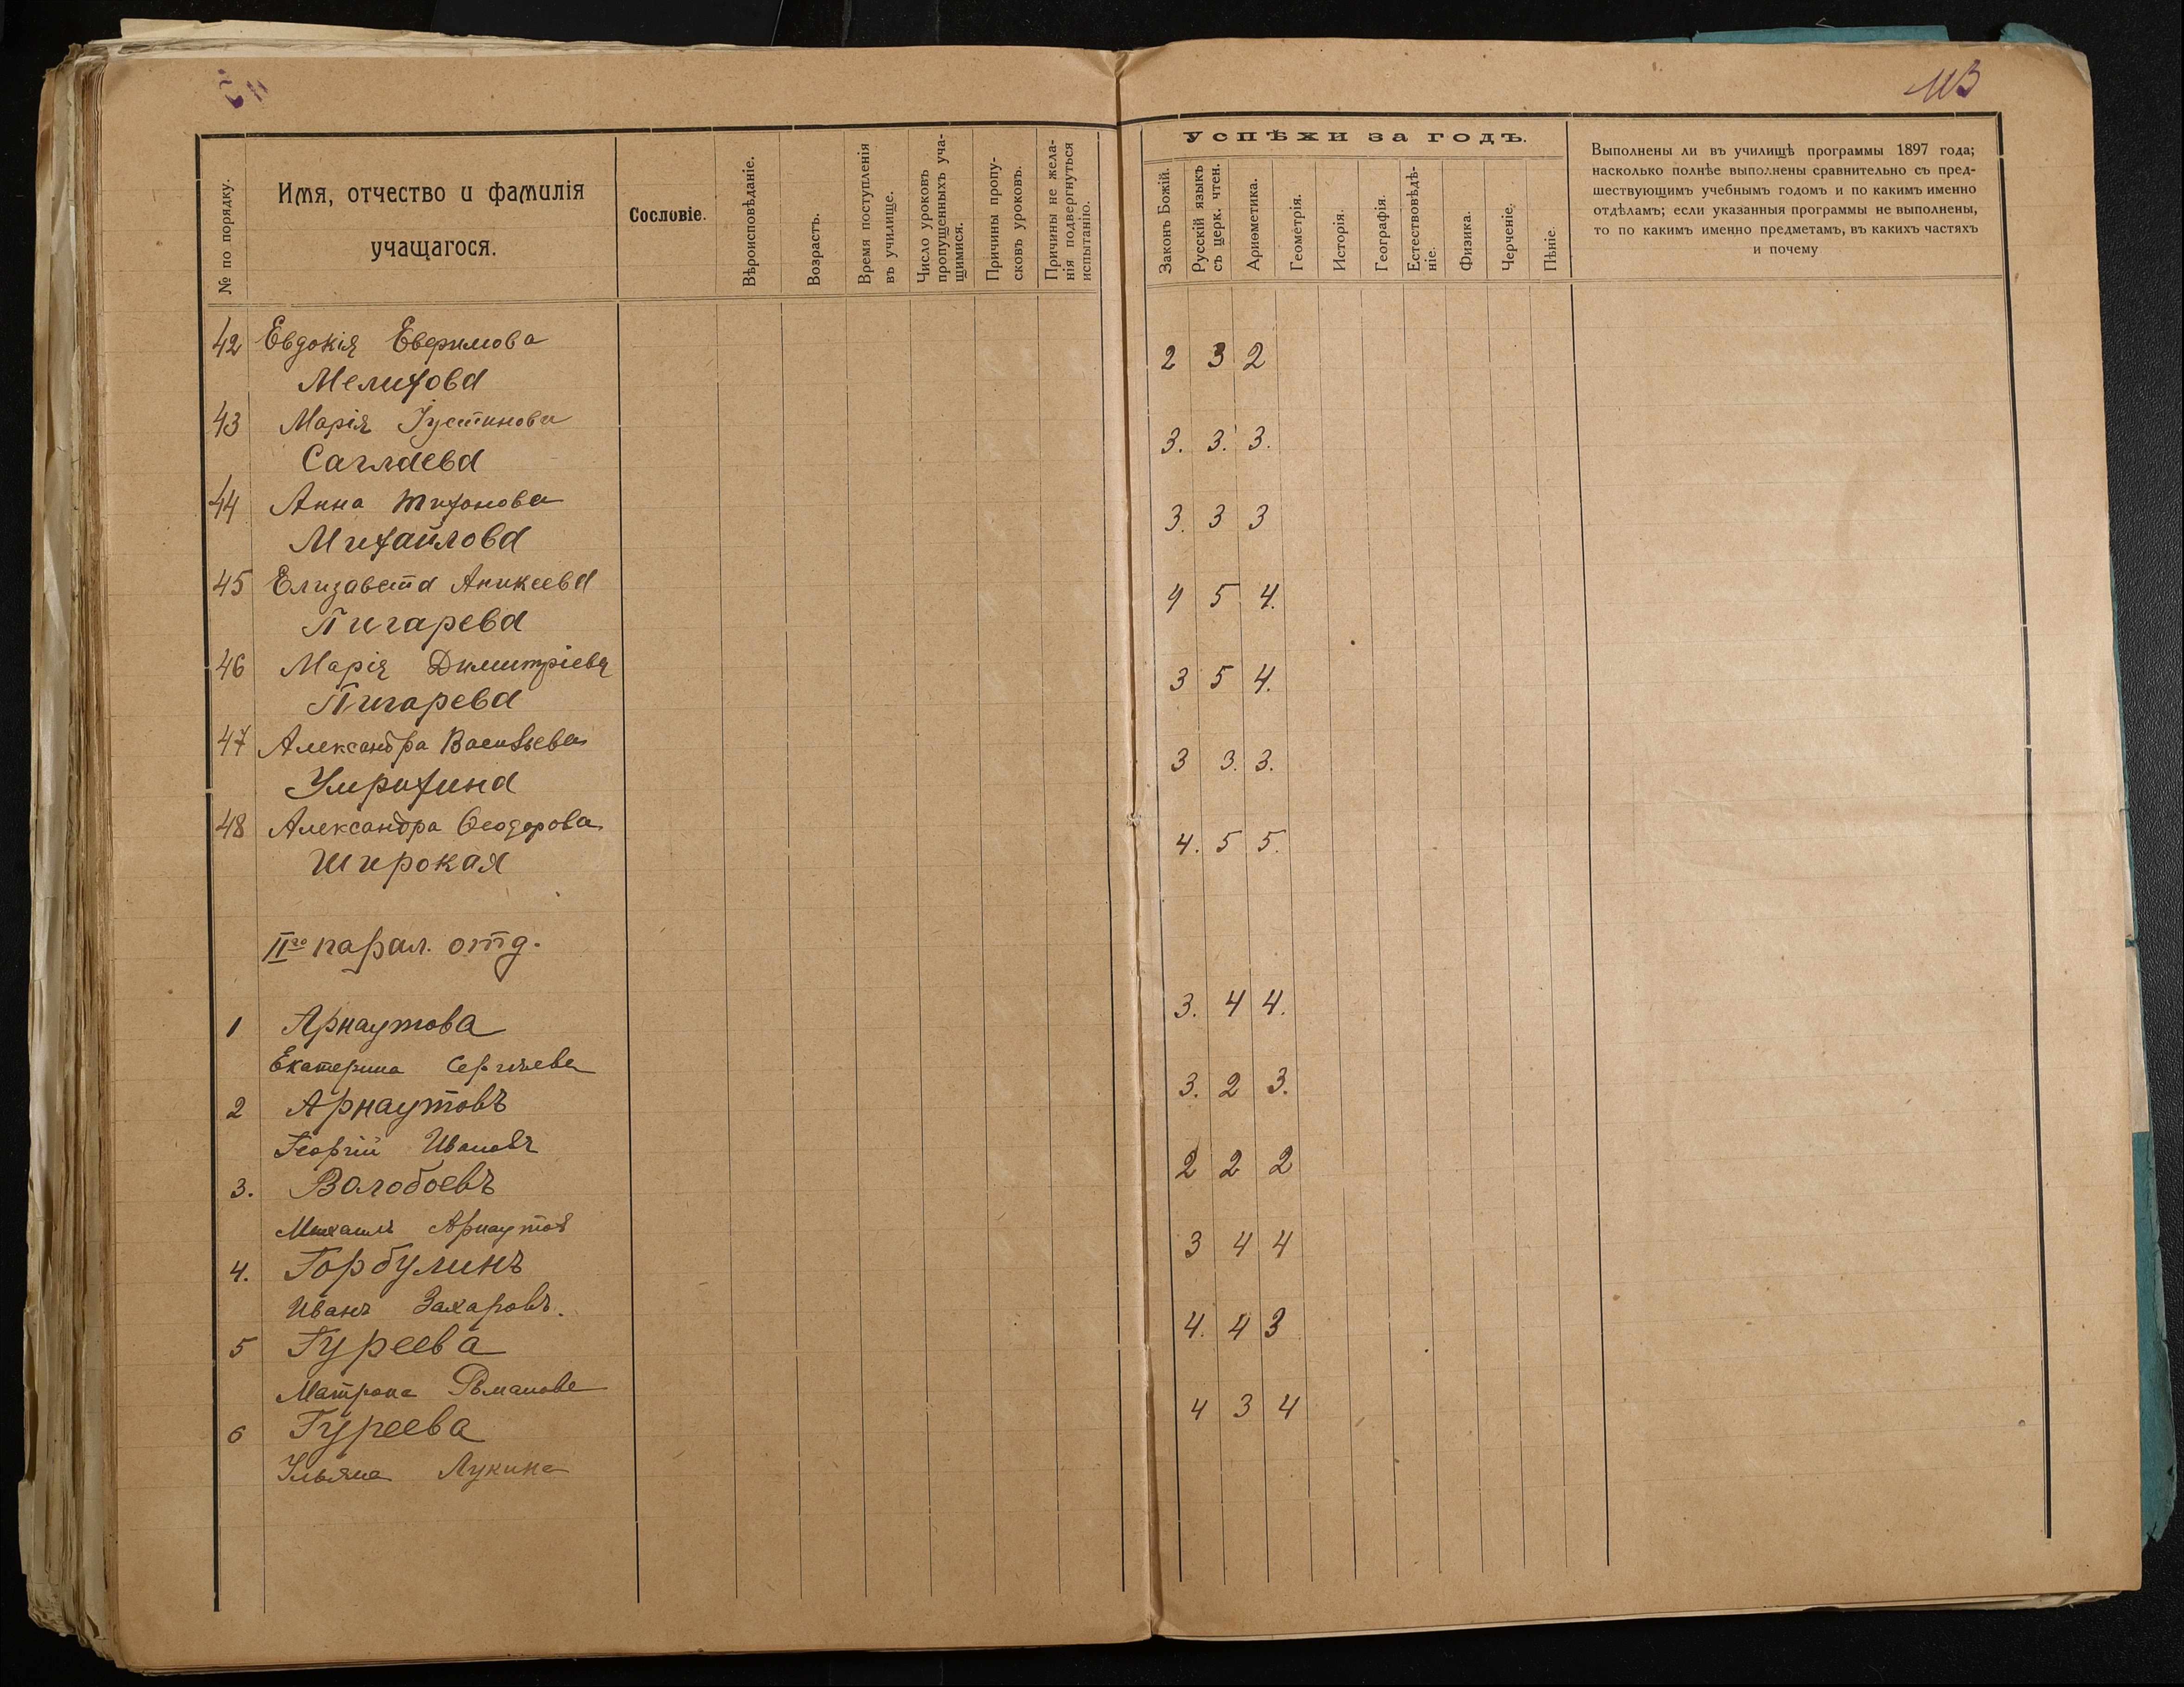 113
№ по порядку.
Имя, отчество и фамилія
учащагося.
Сословіе.
Вѣроисповѣданіе.
Возрастъ.
Время поступленія
въ училище.
Число уроковъ
пропущенныхъ уча-
щимися.
Причины пропу-
сковъ уроковъ.
Причины не жела-
нія подвергнуться
испытанію.
Успѣхи за годъ.
Законъ Божій.
Русскій языкъ
съ церк. чтен.
Ариѳметика.
Геометрія.
Исторія.
Географія.
Естествовѣдѣ-
ніе.
Физика.
Черченіе.
Пѣніе.
Выполнены ли въ училищѣ программы 1897 года;
насколько полнѣе выполнены сравнительно съ пред-
шествующимъ учебнымъ годомъ и по какимъ именно
отдѣламъ; если указанныя программы не выполнены,
то по какимъ именно предметамъ, въ какихъ частяхъ
и почему
42 Евдокія Евфимова
Мелихова 2 3 2
43 Марія Іустинова
Саглаева 3. 3. 3.
44 Анна Тихонова
Михайлова 3. 3 3
45 Елизавета Аникеева
Пигарева 4 5 4.
46 Марія Димитріева
Пигарева 3 5 4.
47 Александра Васильева
Умрихина 3 3. 3.
48 Александра Ѳеодорова
Широкая 4. 5 5.
IIго парал. отд.
1 Арнаутова 3. 4 4.
Екатерина Сергѣева
2 Арнаутовъ 3. 2 3.
Георгій Ивановъ
3. Валобоевъ 2 2 2
Михаилъ Арнаутов
4. Горбулинъ 3 4 4
Иванъ Захаровъ.
5 Гуреева 4. 4 3
Матрона Романова
6 Гуреева 4 3 4
Ульяна Лукина